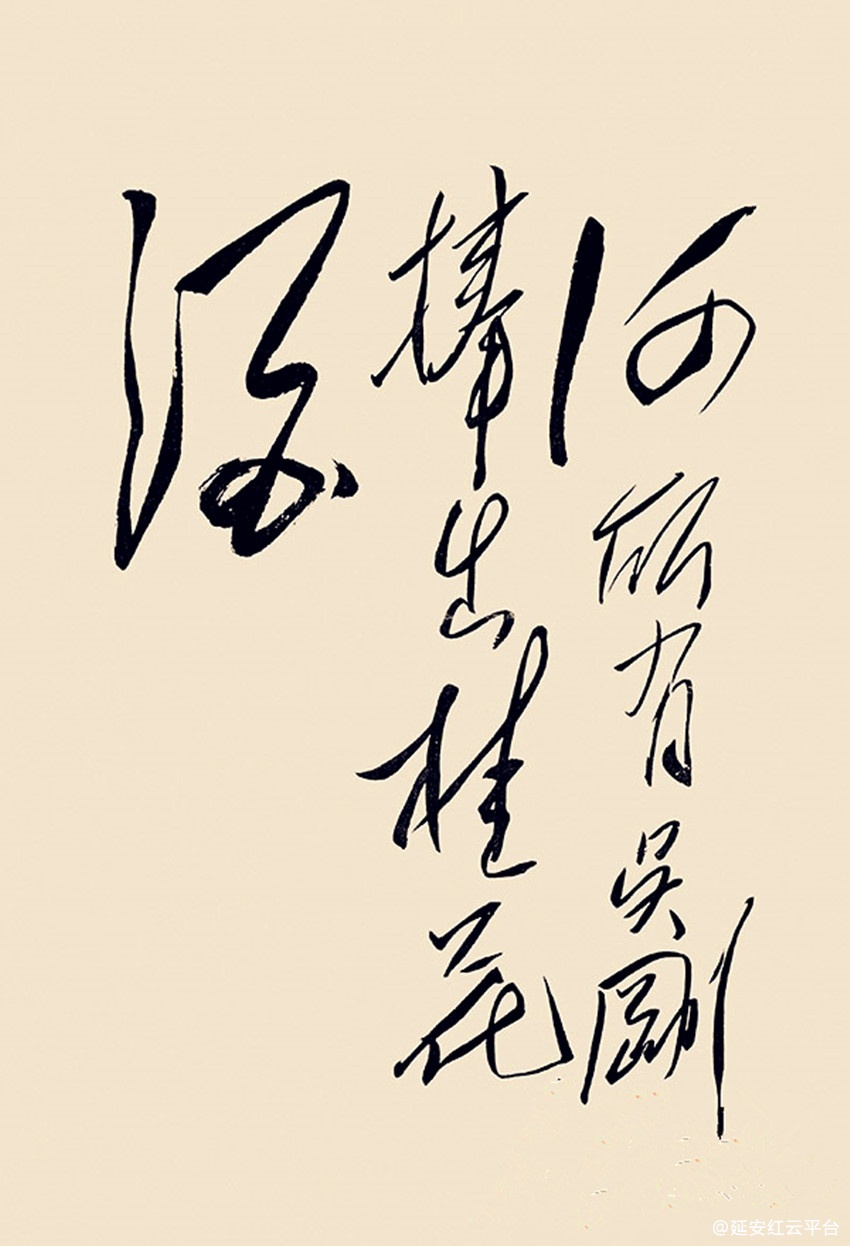 何所有吴刚
捧出桂花
酒
@延安红云平台